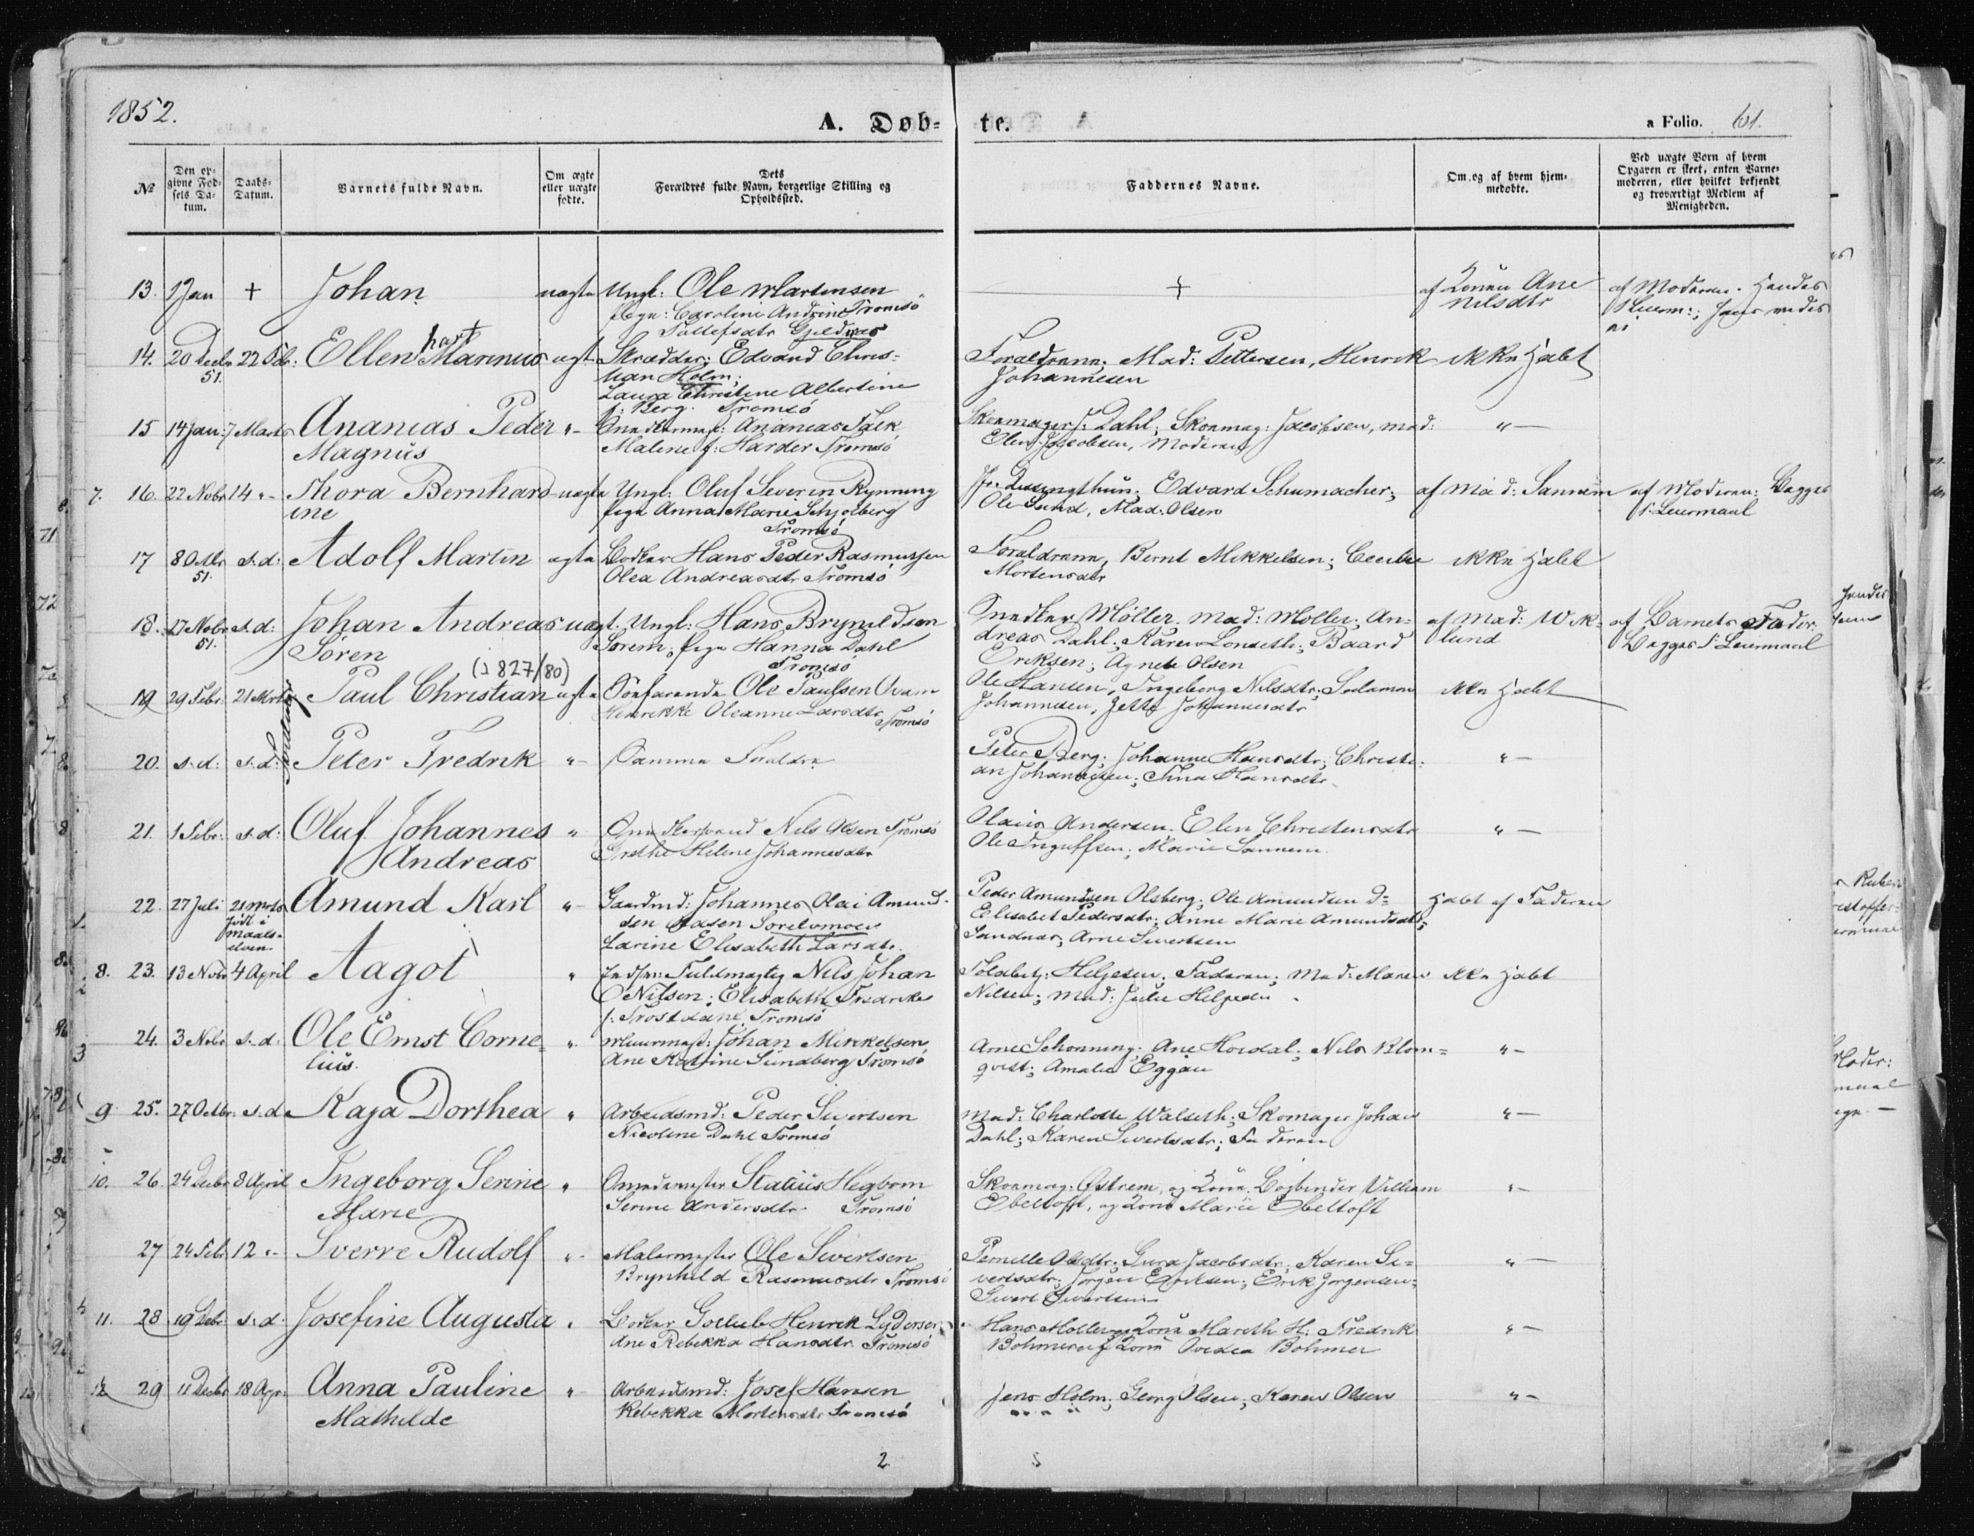 1852.
A. Døb-
te.
a Folio. 61.
№
Den op-
givne Fød-
sels Da-
tum.
Daabs-
Datum.
Barnets fulde Navn.
Om ægte
eller uægte
fødte.
Dets
Forældres fulde Navn, borgerlige Stilling og
Opholdssted.
Faddernes Navne.
Om og af hvem hjem-
medøbte.
Ved uægte Børn af hvem
Opgaven er skeet, enten Barne-
moderen, eller hvilket bekjendt
og troværdigt Medlem af
Menigheden.
13. 1 Jan + Johan uægte Ungk: Ole Martensen
Pige: Caroline Andrine Tromsö
Tollefsdtr Gjeldnes
+
af Konen Ane
Nilsdtr
af Moderen. Hendes
14. 20 Decbr 22 Febr: Ellen Hansine ægt. Skrædder: Edvard Chris-
51.
tian Holm;
Laura Christine Albertine
f. Berg. Tromsö
Forældrene, Mad: Pettersen, Henrik
Johannesen
ikke Hdbt
15 14 Jan: 7 Marts Ananias Peder "-
Magnus
Ananias Falk
Malene f: Harder Tromsö
Skomager J: Dahl; Skomag: Jacobsen, mad:
Elen Jacobsen, Moderen
" -
7. 16. 22 Novbr 14 "- Thora Bernhard- uægte Ungk: Oluf Severin Rynning
ine
Pige Anna Marie Schjelberg
Tromsö
Edvard Schumacher;
Ole Lund, Mad. Olsen
af Mad: Sannem
af Moderen; Begges
1 Leiermaal
17 8 Octbr s.d: Adolf Martin ægte Bødker Hans Peder Rasmussen
51.
Olea Andreasdtr Tromsö
Forældrene, Bernt Mikkelsen; Cecilie
Mortensdtr
ikke Hdbt
18. 17 Novbr s.d: Johan Andreas uægt. Ungk: Hans Brynildsen
51.
Sören
Sörem; Pige Hanna Dahl
Tromsö
Snedker Möller, Mad: Möller, An-
dreas Dahl; Karen Lonseth; Baard
Eriksen; Agnete Olsen
af Mad: Wik-
lund
af Barnets Fader
Begges 1 Leiermaal
(J 827/80)
19 29 Febr: 21 Marts Paul Christian ægte Söefarende Ole Paulsen Svan
Henrikke Oleanne Larsdtr Tromsö
Ole Hansen, Ingeborg Nilsdtr, Salamon
Johannesen, Jette Johannesdtr
ikke Hdbt
20. s.d: s.d: Peter Fredrik "- Samme Forældre
Peter Berg; Johanne Hansdtr; Christi-
an Johannesen; Stina Hansdtr
"-
21. 1 Febr: s.d: Oluf Johannes "
Andreas
Nils Olsen Tromsö
Grethe Helene Johannesdtr
Olaus Andersen. Elen Christensdtr
Ole Inguffsen; Marie Sannem
"-
22. 27 Juli 21 Marts Amund Karl "- Gaardmd: Johannes Olai Amund-
født i
maals-
elven.
sen Aasen Sorelvmoen
Larine Elisabeth Larsdtr.
Peder Amundsen Olsborg; Ole Amundsen D=
Elisabet Pedersdtr; Anne Marie Amundsdtr;
Sandnes, Arne Sivertsen
Hdbt af Faderen
8. 23. 13 Novbr 4 April Aagot " Fuldmægtig Nils Johan
Nilsen; Elisabeth Fredrikke
f: Trostdahl Tromsö
Toldbetj: Helgesen; Faderen; Mad: Maren
Nilsen; mad: Julie Helgesen
ikke Hdbt
24. 3 Novbr s.d: Ole Ernst Corne- ". Muurmest: Johan Mikkelsen
lius.
Ane Katrine Sundberg Tromsö
Arne Schonning; Ane Hordal; Nils Blom-
qvist; Amalie Eggan
"-
9 25. 27 Octbr: s.d. Kaja Dorthea " Arbeidsmd: Peder Sivertsen
Nicoline Dahl Tromsö
Mad: Charlotte Walseth; Skomager Johan
Dahl; Karen Sivertsdtr; Faderen
"-
10. 26. 24 Decbr 8 April Ingeborg Serine "
Marie
Statius Hegbom
Serine Andersdtr. Tromsö
Skomag: Østrem, og Kone, Bogbinder Villiam
Ebeltoft, og Kone Marie Ebeltoft
"-
27 24 Febr 12 "- Sverre Rudolf "- Malermester Ole Sivertsen
Brynhild Rasmusdtr Tromsö
Pernille Olsdtr; Gura Jacobsdtr; Karen Si-
vertsdtr; Jörgen Eriksen; Erik Jörgensen-
Sivert Sivertsen
"-
11. 28 19 Decbr s.d. Josefine Augusta " Bödker Gotlieb Henrik Lydersen
Ane Rebekka Hansdtr Tromsö
Hans Möller og Kone Mareth H: Fredrik
Bohmer og Kone Ovedia Bohmer
"-
12 29 11 Decbr 18 Apr: Anna Pauline "- Arbeidsmd: Josef Hansen
Mathilde
Rebekka Mortensdtr Tromsö
Jens Holm; Georg Olsen; Karen Olsen
"-
2